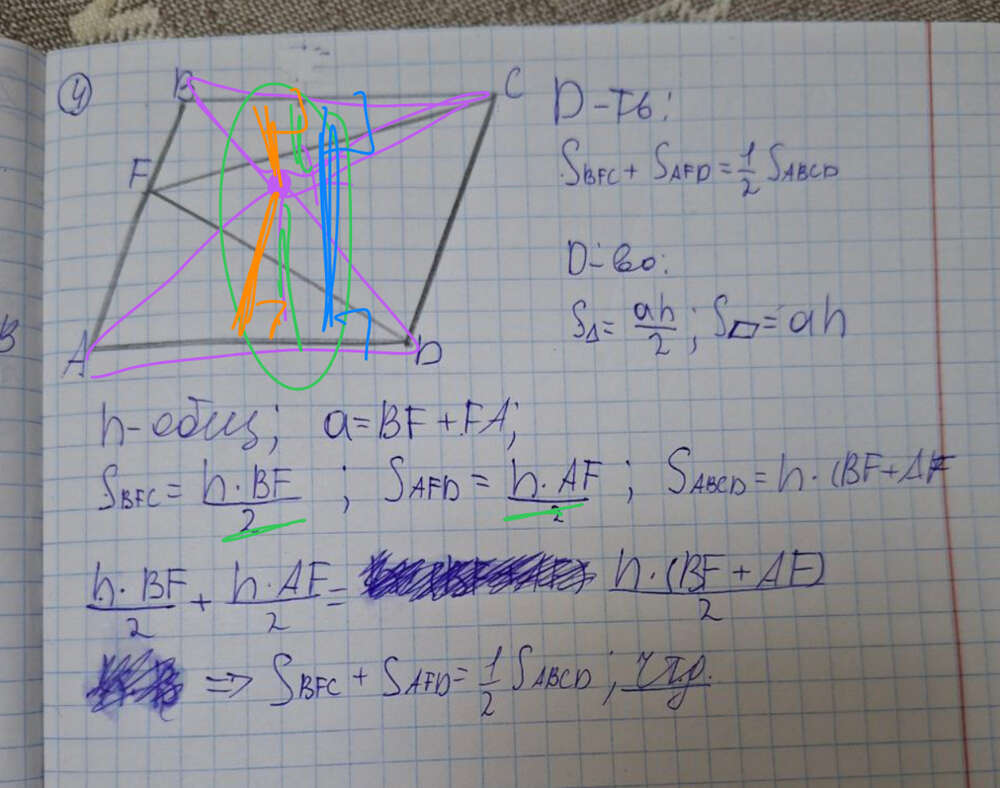 ④
B
C
F
A
D
B
D-ть:
S_BFC + S_AFD = 1/2 S_ABCD
D-во:
S_Δ = ah/2 ; S_▱ = ah
h-общ; a = BF + FA;
S_BFC = h·BF/2 ; S_AFD = h·AF/2 ; S_ABCD = h·(BF+AF
h·BF/2 + h·AF/2 = h·(BF + AF)/2
=> S_BFC + S_AFD = 1/2 S_ABCD ; чтд.